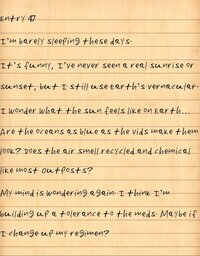 Entry 47
I'm barely sleeping these days.
It's funny, I've never seen a real sunrise or
sunset, but I still use Earth's vernacular.
I wonder what the sun feels like on Earth...
Are the oceans as blue as the vids make them
look? Does the air smell recycled and chemical
like most outposts?
My mind is wandering again. I think I'm
building up a tolerance to the meds. Maybe if
I change up my regimen?